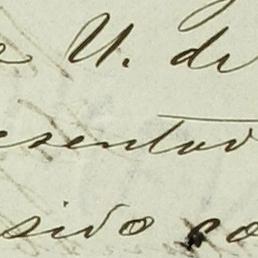 e U. de
esentad
sido co